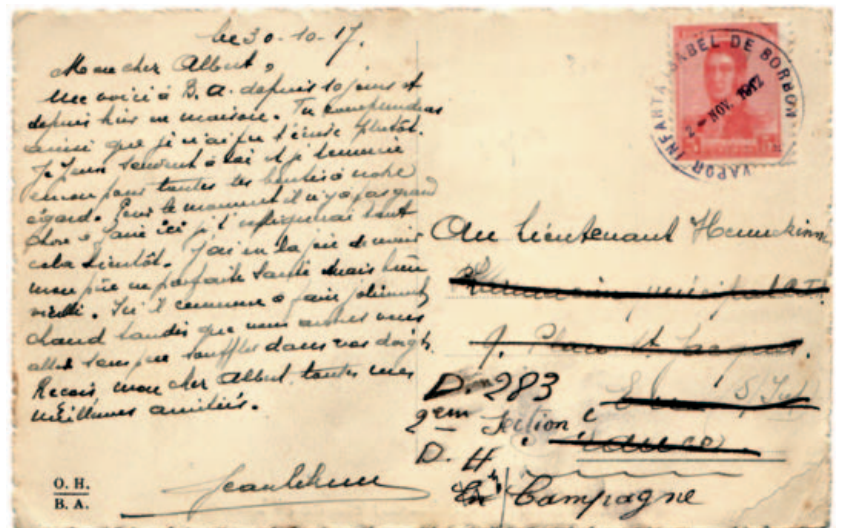 Le 30-10-17.
Mon cher Albert,
Me voici à B. A. depuis 10 jours et
depuis hier en maison. Tu comprendras
ainsi que je n'ai pu t'écrire plutôt.
Je pense souvent à toi et je remercie
encore pour toutes les bontés à notre
égard. Pour le moment il n'y a pas grand
chose à faire ici je t'expliquerai tout
cela bientôt. J'ai eu la joie de revoir
mon père en parfaite santé mais bien
vieilli. Ici il commence à faire joliment
chaud tandis que vous autres vous
allez sans souffler dans vos doigts.
Recois, mon cher Albert, toutes mes
meilleures amitiés.
O. H.
B. A.
VAPOR INFANTA ISABEL DE BORBON
2 - NOV. 1917
Au lieutenant
J. Place St Jacques.
D. 283
2em Section
D. H
En Campagne